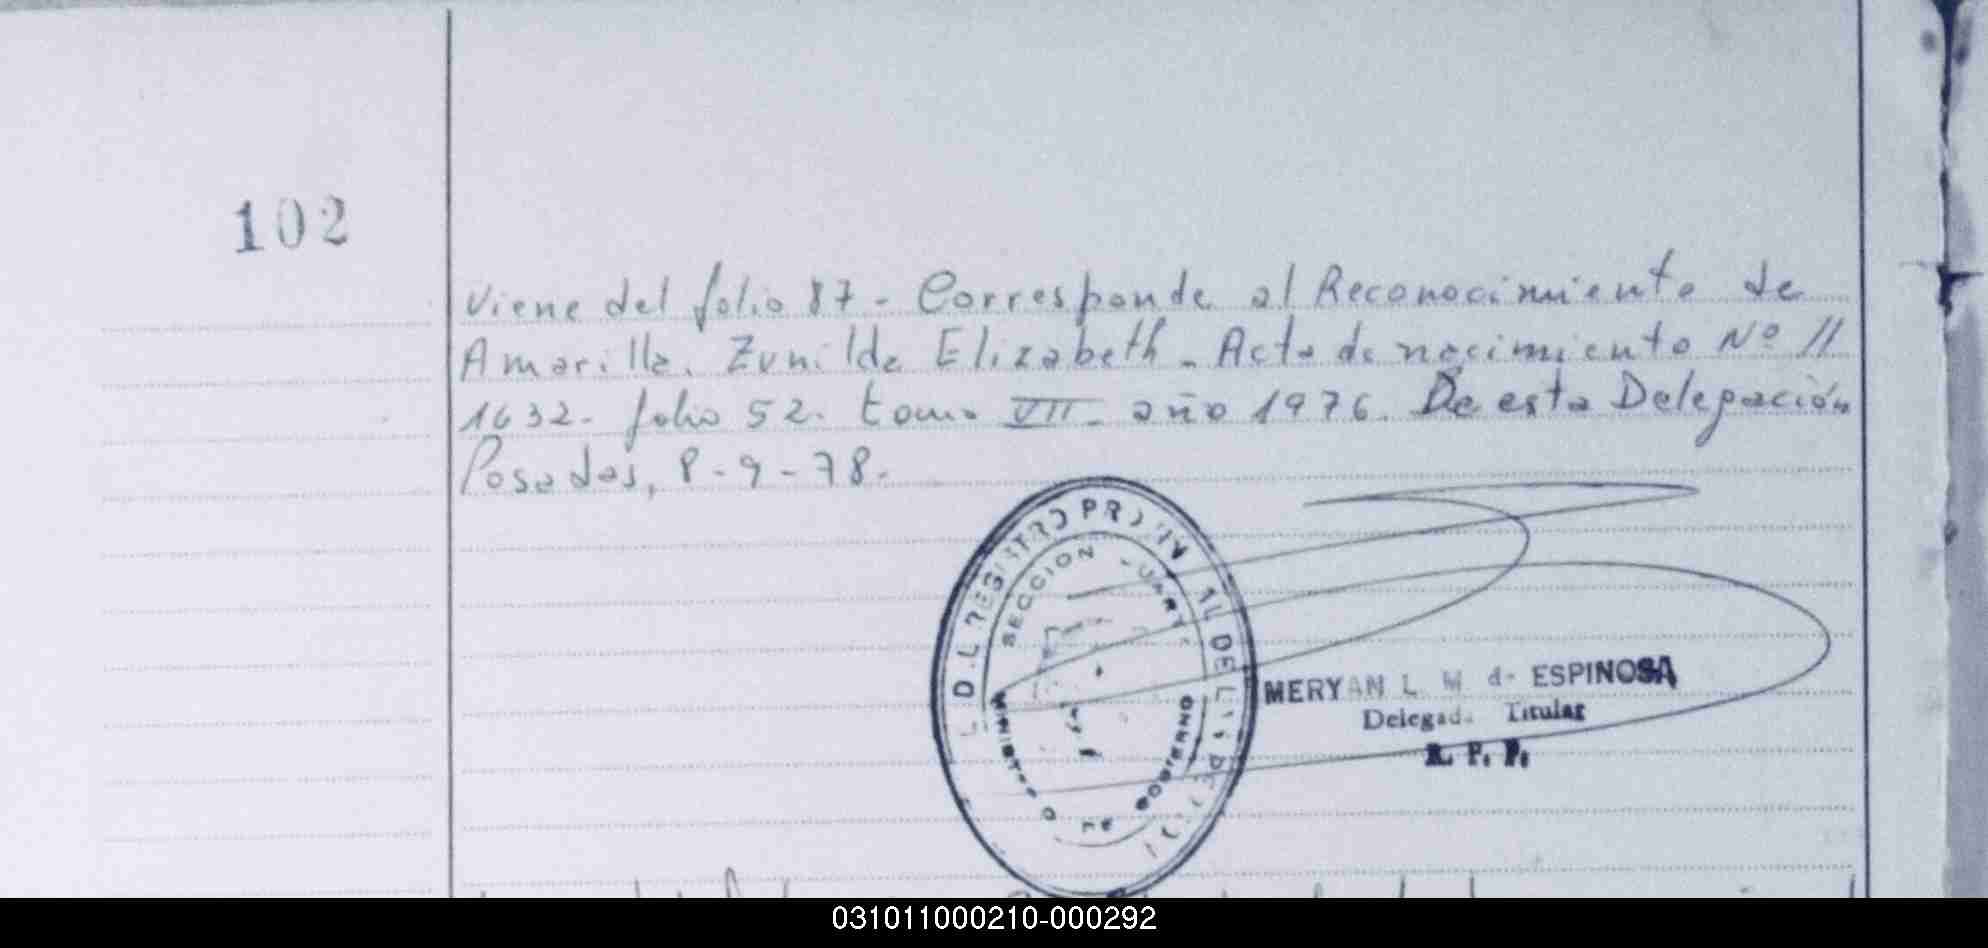 102
Viene del folio 87 - Corresponde al Reconocimiento de
Amarilla, Zunilda Elizabeth - Acta de nacimiento Nº //
1632 - folio 52. tomo VII - año 1976. De esta Delegación
Posadas, 8-9-78.
SECCION
GOBIERNO
MERYAN L. M. de ESPINOSA
Delegada Titular
R. P. P.
031011000210-000292